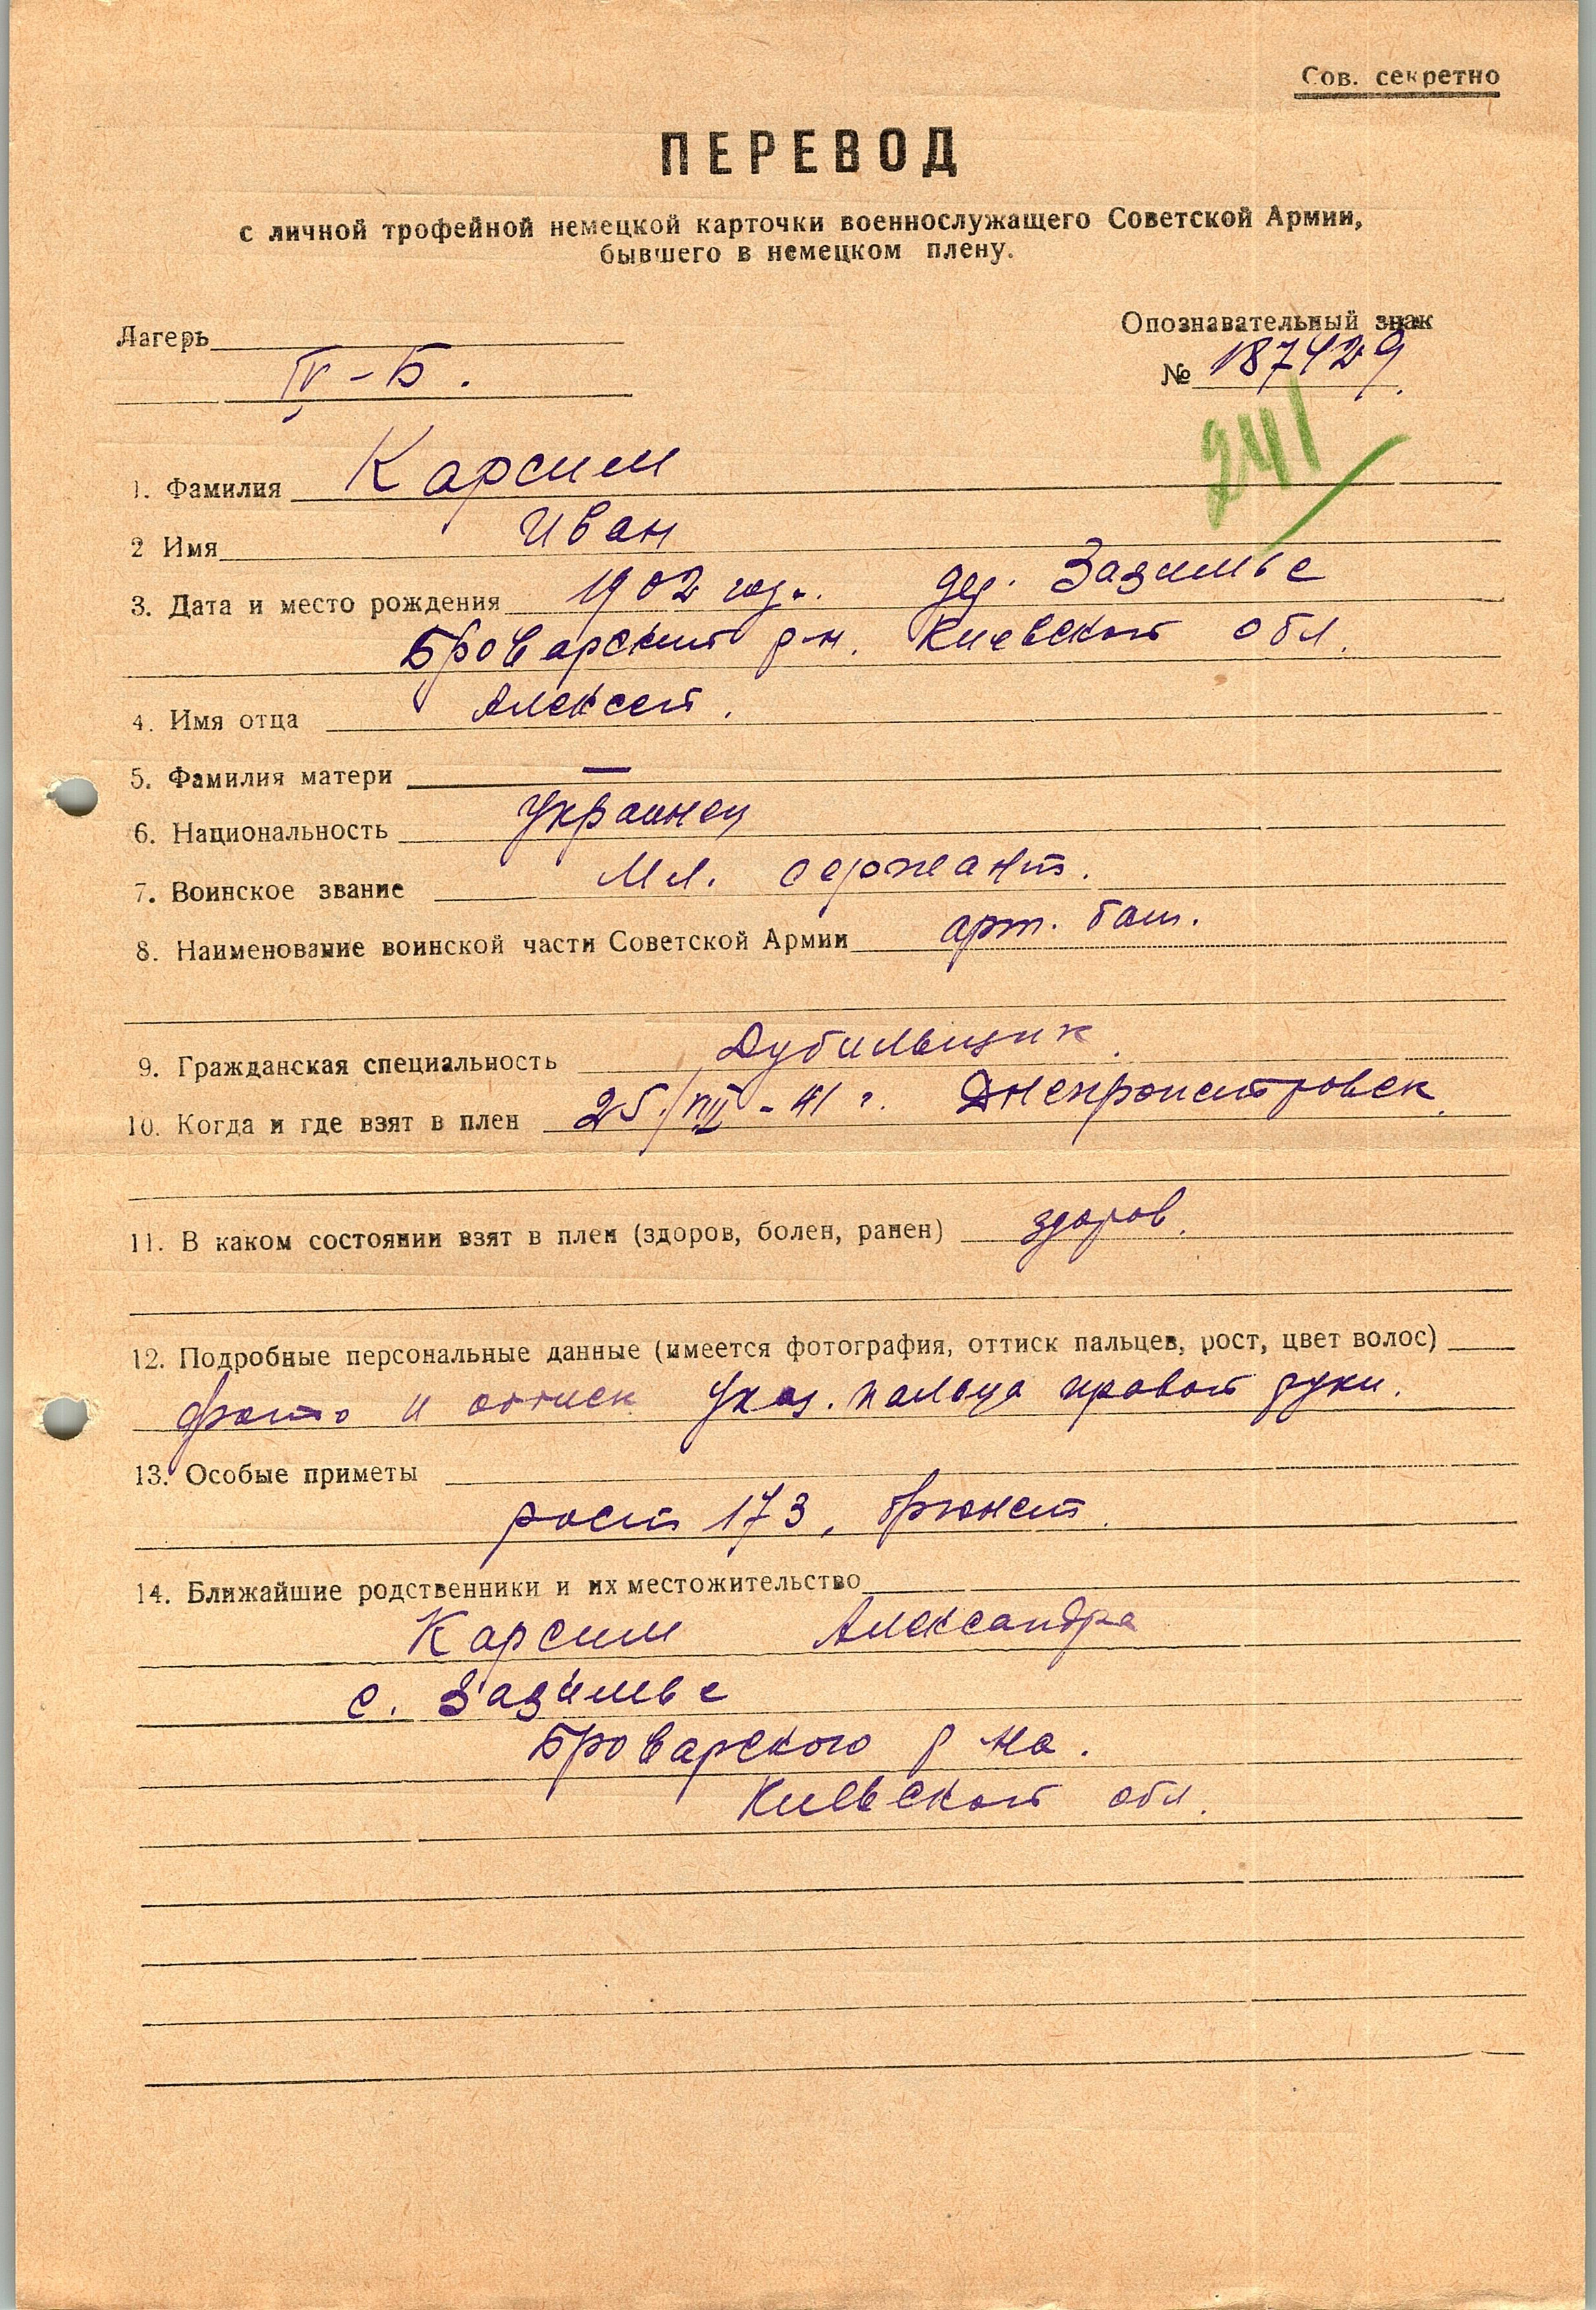 Сов. секретно
ПЕРЕВОД
с личной трофейной немецкой карточки военнослужащего Советской Армии,
бывшего в немецком плену.
Лагерь
IV-Б.
Опознавательный знак
№ 187429
241
1. Фамилия Карсим
2 Имя Иван
3. Дата и место рождения 1902 год. дер. Зазимье
Броварский р-н. Киевской обл.
4. Имя отца Алексей.
5. Фамилия матери —
6. Национальность Украинец
7. Воинское звание Мл. сержант.
8. Наименование воинской части Советской Армии арт. бат.
9. Гражданская специальность Дубильщик.
10. Когда и где взят в плен 25/VIII-41 г. Днепропетровск.
11. В каком состоянии взят в плен (здоров, болен, ранен) здоров.
12. Подробные персональные данные (имеется фотография, оттиск пальцев, рост, цвет волос)
фото и оттиск Указ. пальца правой руки.
13. Особые приметы
рост 173, брюнет.
14. Ближайшие родственники и их местожительство
Карсим Александра
с. Зазимье
Броварского р-на.
Киевской обл.